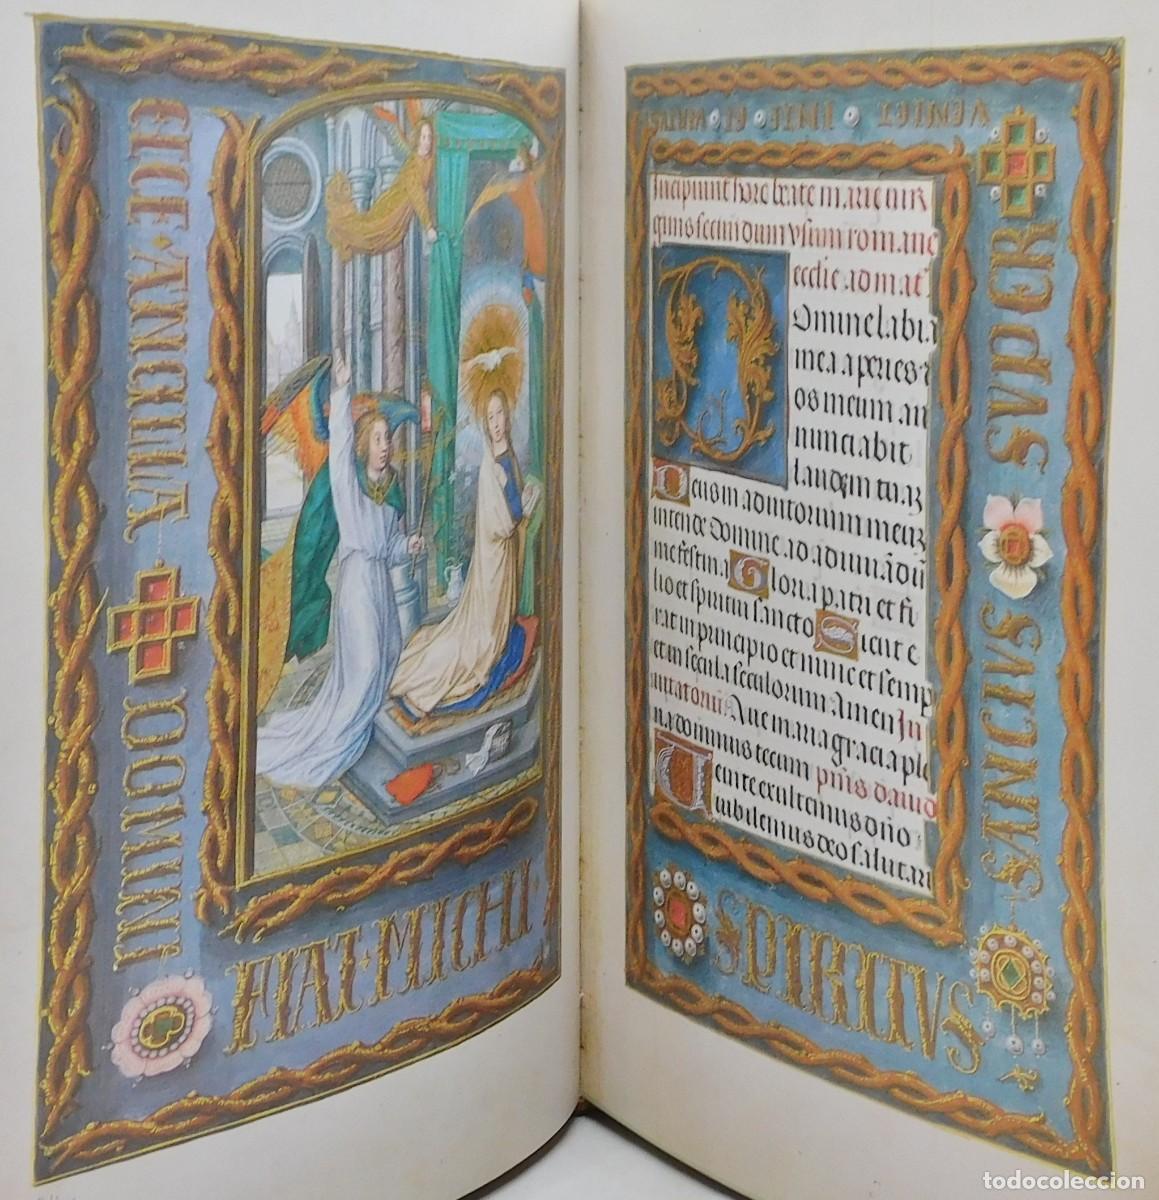 ECCE·ANCILLA
DOMINI
FIAT·MICHI·
VENIET
SVPER
SANCTVS
SPIRITVS
Incipiunt hore beate marie uir
ginis secundum vsum romane
ecclie ad mat
Domine labia
mea aperies
os meum an
nunciabit
laudem tuaz
Deus in adiutorium meuz
intende Domine ad adiuuādū
me festina Gloria patri et fi
lio et spiritui sancto Sicut e
rat in principio et nunc et semp
et in secula seculorum Amen In
uitatoriū Aue maria gracia ple
na dominus tecum psus dauid
Uenite exultemus dño
iubilemus deo salutari
todocoleccion